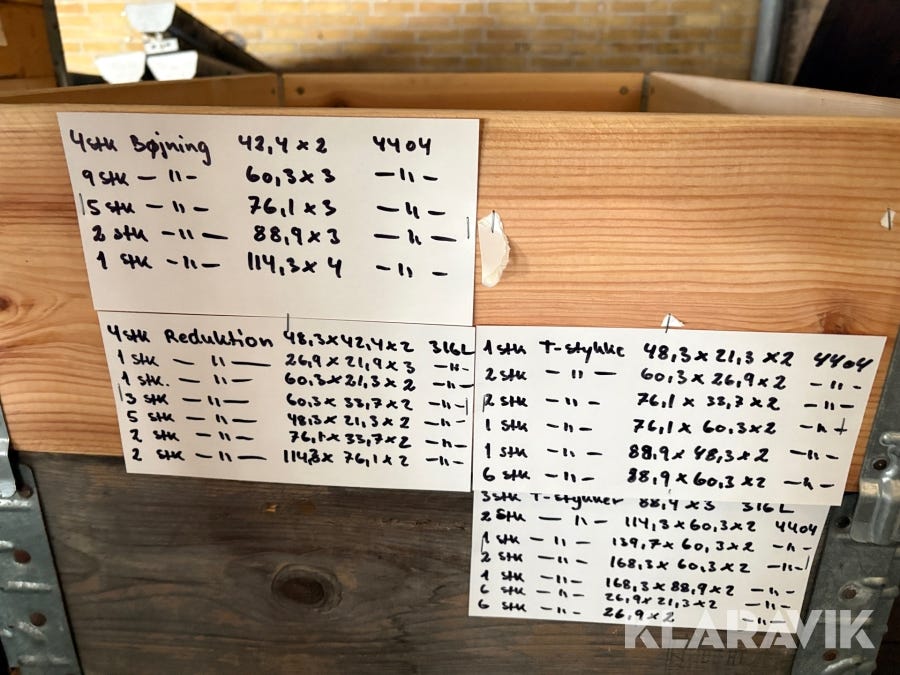 4 stk Bøjning 42,4 x 2 4404
9 stk — " — 60,3 x 3 — " —
5 stk — " — 76,1 x 3 — " —
2 stk — " — 88,9 x 3 — " —
1 stk — " — 114,3 x 4 — " —
4 stk Reduktion 48,3 x 42,4 x 2 316L
1 stk — " — 26,9 x 21,9 x 3 — " —
1 stk. — " — 60,3 x 21,3 x 2 — " —
3 stk — " — 60,3 x 33,7 x 2 — " —
5 stk — " — 48,3 x 21,3 x 2 — " —
2 stk — " — 76,1 x 33,7 x 2 — " —
2 stk — " — 114,3 x 76,1 x 2 — " —
1 stk T-stykke 48,3 x 21,3 x 2 4404
2 stk — " — 60,3 x 26,9 x 2 — " —
2 stk — " — 76,1 x 33,7 x 2 — " —
1 stk — " — 76,1 x 60,3 x 2 — " —
1 stk — " — 88,9 x 48,3 x 2 — " —
6 stk — " — 88,9 x 60,3 x 2 — " —
3 stk T-stykker 88,4 x 3 316L
2 stk — " — 114,3 x 60,3 x 2 4404
1 stk — " — 139,7 x 60,3 x 2 — " —
2 stk — " — 168,3 x 60,3 x 2 — " —
1 stk — " — 168,3 x 88,9 x 2 — " —
6 stk — " — 26,9 x 21,3 x 2 — " —
6 stk — " — 26,9 x 2 — " —
KLARAVIK